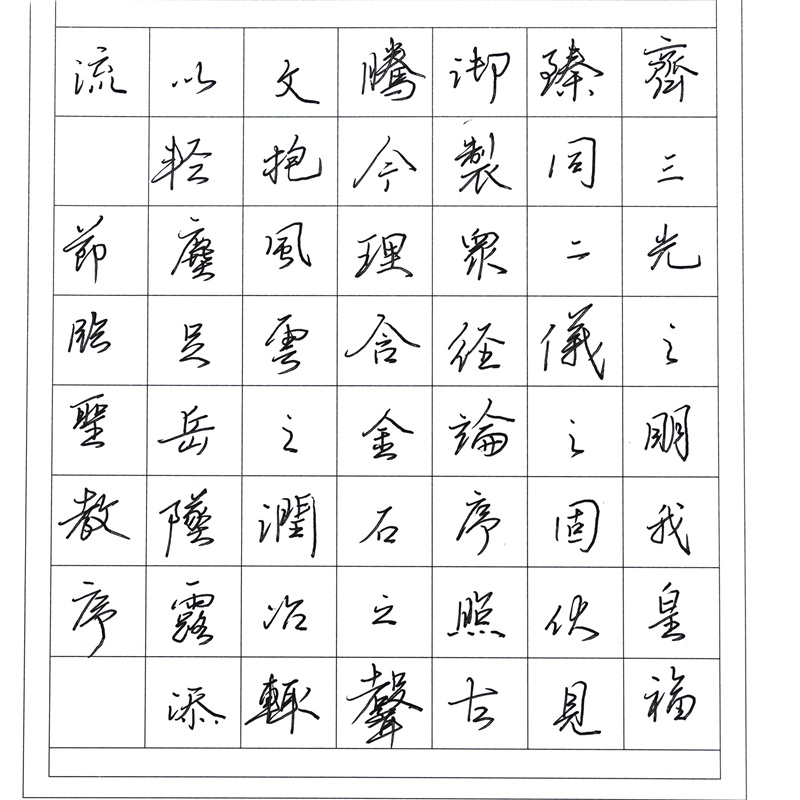 齊三光之明我皇福
臻同二儀之固伏見
御製眾經論序照古
騰今理含金石之聲
文抱風雲之潤治輒
以輕塵足岳墜露添
流
節臨聖教序